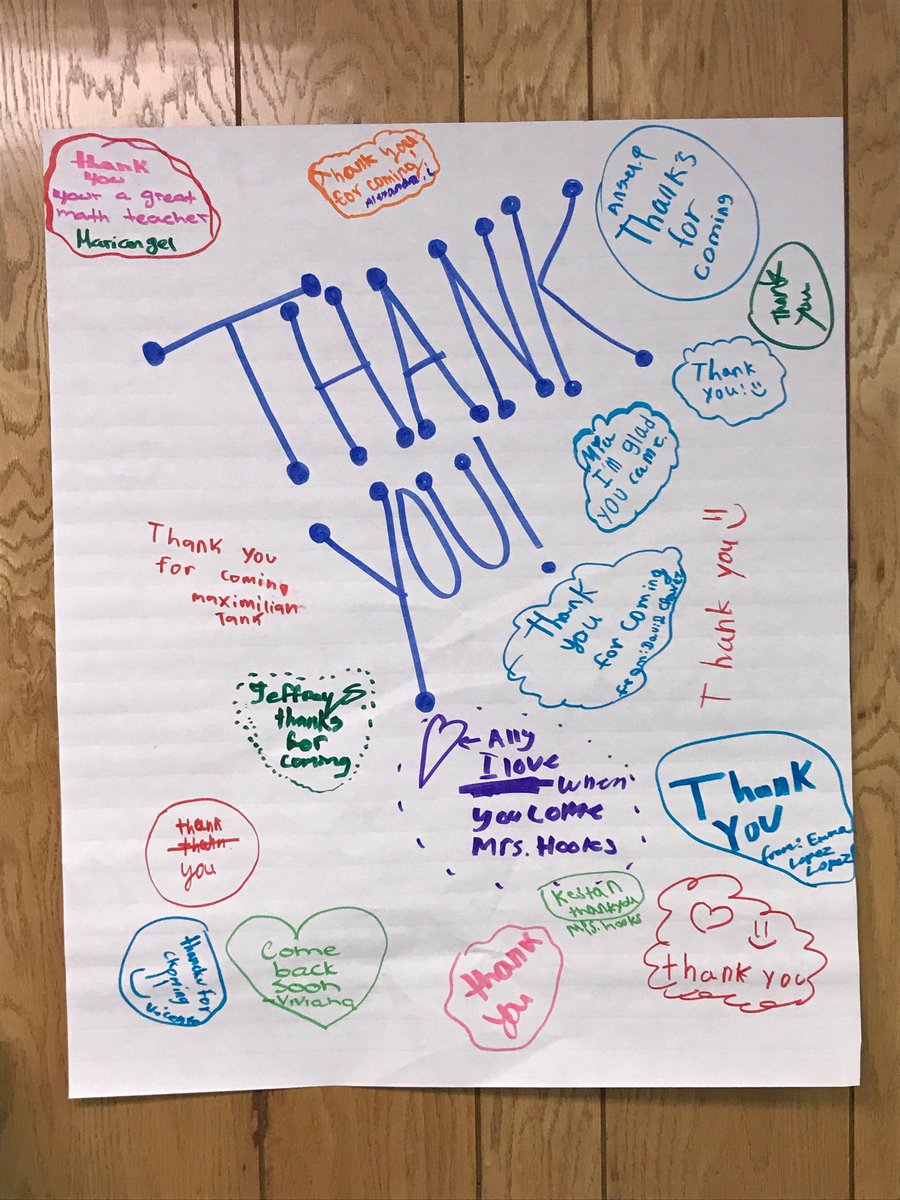 thank
you
your a great
math teacher
Mariangel
Thank you
for coming
Alexander.L
Answel.P
Thanks
for
coming
Thank
you
THANK
YOU!
Thank
you!
Mya
I'm glad
you came.
Thank you
Thank you
for coming
maximilian
Tank
Thank
you
for coming
from: David Chavez
Jeffrey S
thanks
for
coming
Ally
I love
when
you come
Mrs. Hooks
Thank
You
from: Emma
Lopez
Lopez
thank
thakn
you
Kestan
thankyou
Mrs. hooks
thank you
thanku for
ckoming
Come
back
soon
-Viviana
thank
you